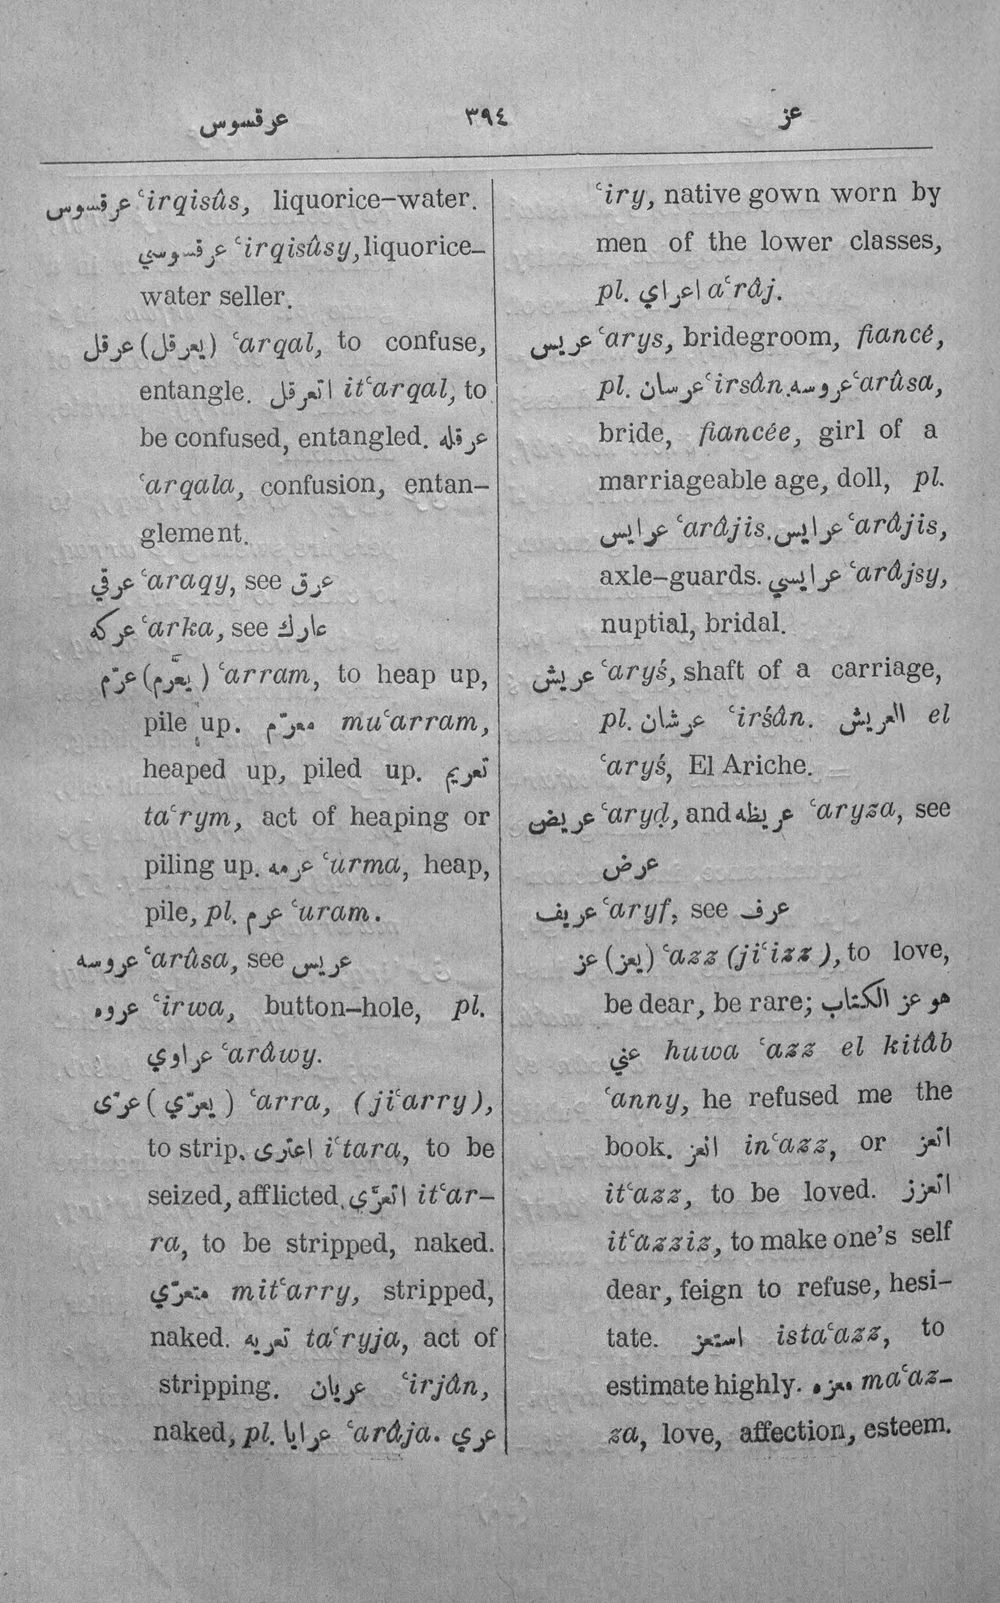 عرقسوس ٣٩٤ عز
عرقسوس ʿirqisûs, liquorice-water.
عرقسوسي ʿirqisûsy, liquorice-
water seller.
عرقل (يعرقل) ʿarqal, to confuse,
entangle. اتعرقل itʿarqal, to
be confused, entangled. عرقله
ʿarqala, confusion, entan-
glement.
عرقي ʿaraqy, see عرق
عركه ʿarka, see عارك
عرّم (يعرّم) ʿarram, to heap up,
pile up. معرّم muʿarram,
heaped up, piled up. تعريم
taʿrym, act of heaping or
piling up. عرمه ʿurma, heap,
pile, pl. عرم ʿuram.
عروسه ʿarûsa, see عريس
عروه ʿirwa, button-hole, pl.
عراوي ʿarâwy.
عرّى (يعرّي) ʿarra, (jiʿarry),
to strip. اعترى iʿtara, to be
seized, afflicted. اتعرّي itʿar-
ra, to be stripped, naked.
متعرّي mitʿarry, stripped,
naked. تعريه taʿryja, act of
stripping. عريان ʿirjân,
naked, pl. عرايا ʿarâja. عري
ʿiry, native gown worn by
men of the lower classes,
pl. اعراي aʿrâj.
عريس ʿarys, bridegroom, fiancé,
pl. عرسان ʿirsân. عروسه ʿarûsa,
bride, fiancée, girl of a
marriageable age, doll, pl.
عرايس ʿarâjis. عرايس ʿarâjis,
axle-guards. عرايسي ʿarâjsy,
nuptial, bridal.
عريش ʿaryś, shaft of a carriage,
pl. عرشان ʿirśân. العريش el
ʿaryś, El Ariche.
عريض ʿaryḍ, and عريظه ʿaryza, see
عرض
عريف ʿaryf, see عرف
عز (يعز) ʿazz (jiʿizz), to love,
be dear, be rare; هو عز الكتاب
عني huwa ʿazz el kitâb
ʿanny, he refused me the
book. انعز inʿazz, or اتعز
itʿazz, to be loved. اتعزز
itʿazziz, to make one's self
dear, feign to refuse, hesi-
tate. استعز istaʿazz, to
estimate highly. معزه maʿaz-
za, love, affection, esteem.